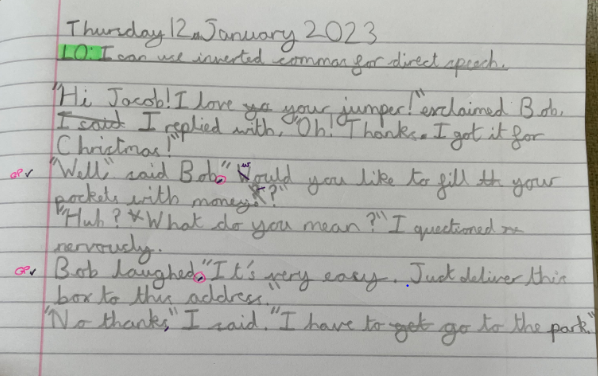 Thursday 12 January 2023
LO: I can use inverted commas for direct speech.
"Hi Jacob! I love yo your jumper!" exclaimed Bob.
I said I replied with, "Oh! Thanks. I got it for
Christmas!"
GP✓ "Well" said Bob, "would you like to fill th your
pockets with money?"
"Huh? What do you mean?" I questioned
nervously.
GP✓ Bob laughed, "It's very easy. Just deliver this
box to this address."
"No thanks," I said. "I have to get go to the park."